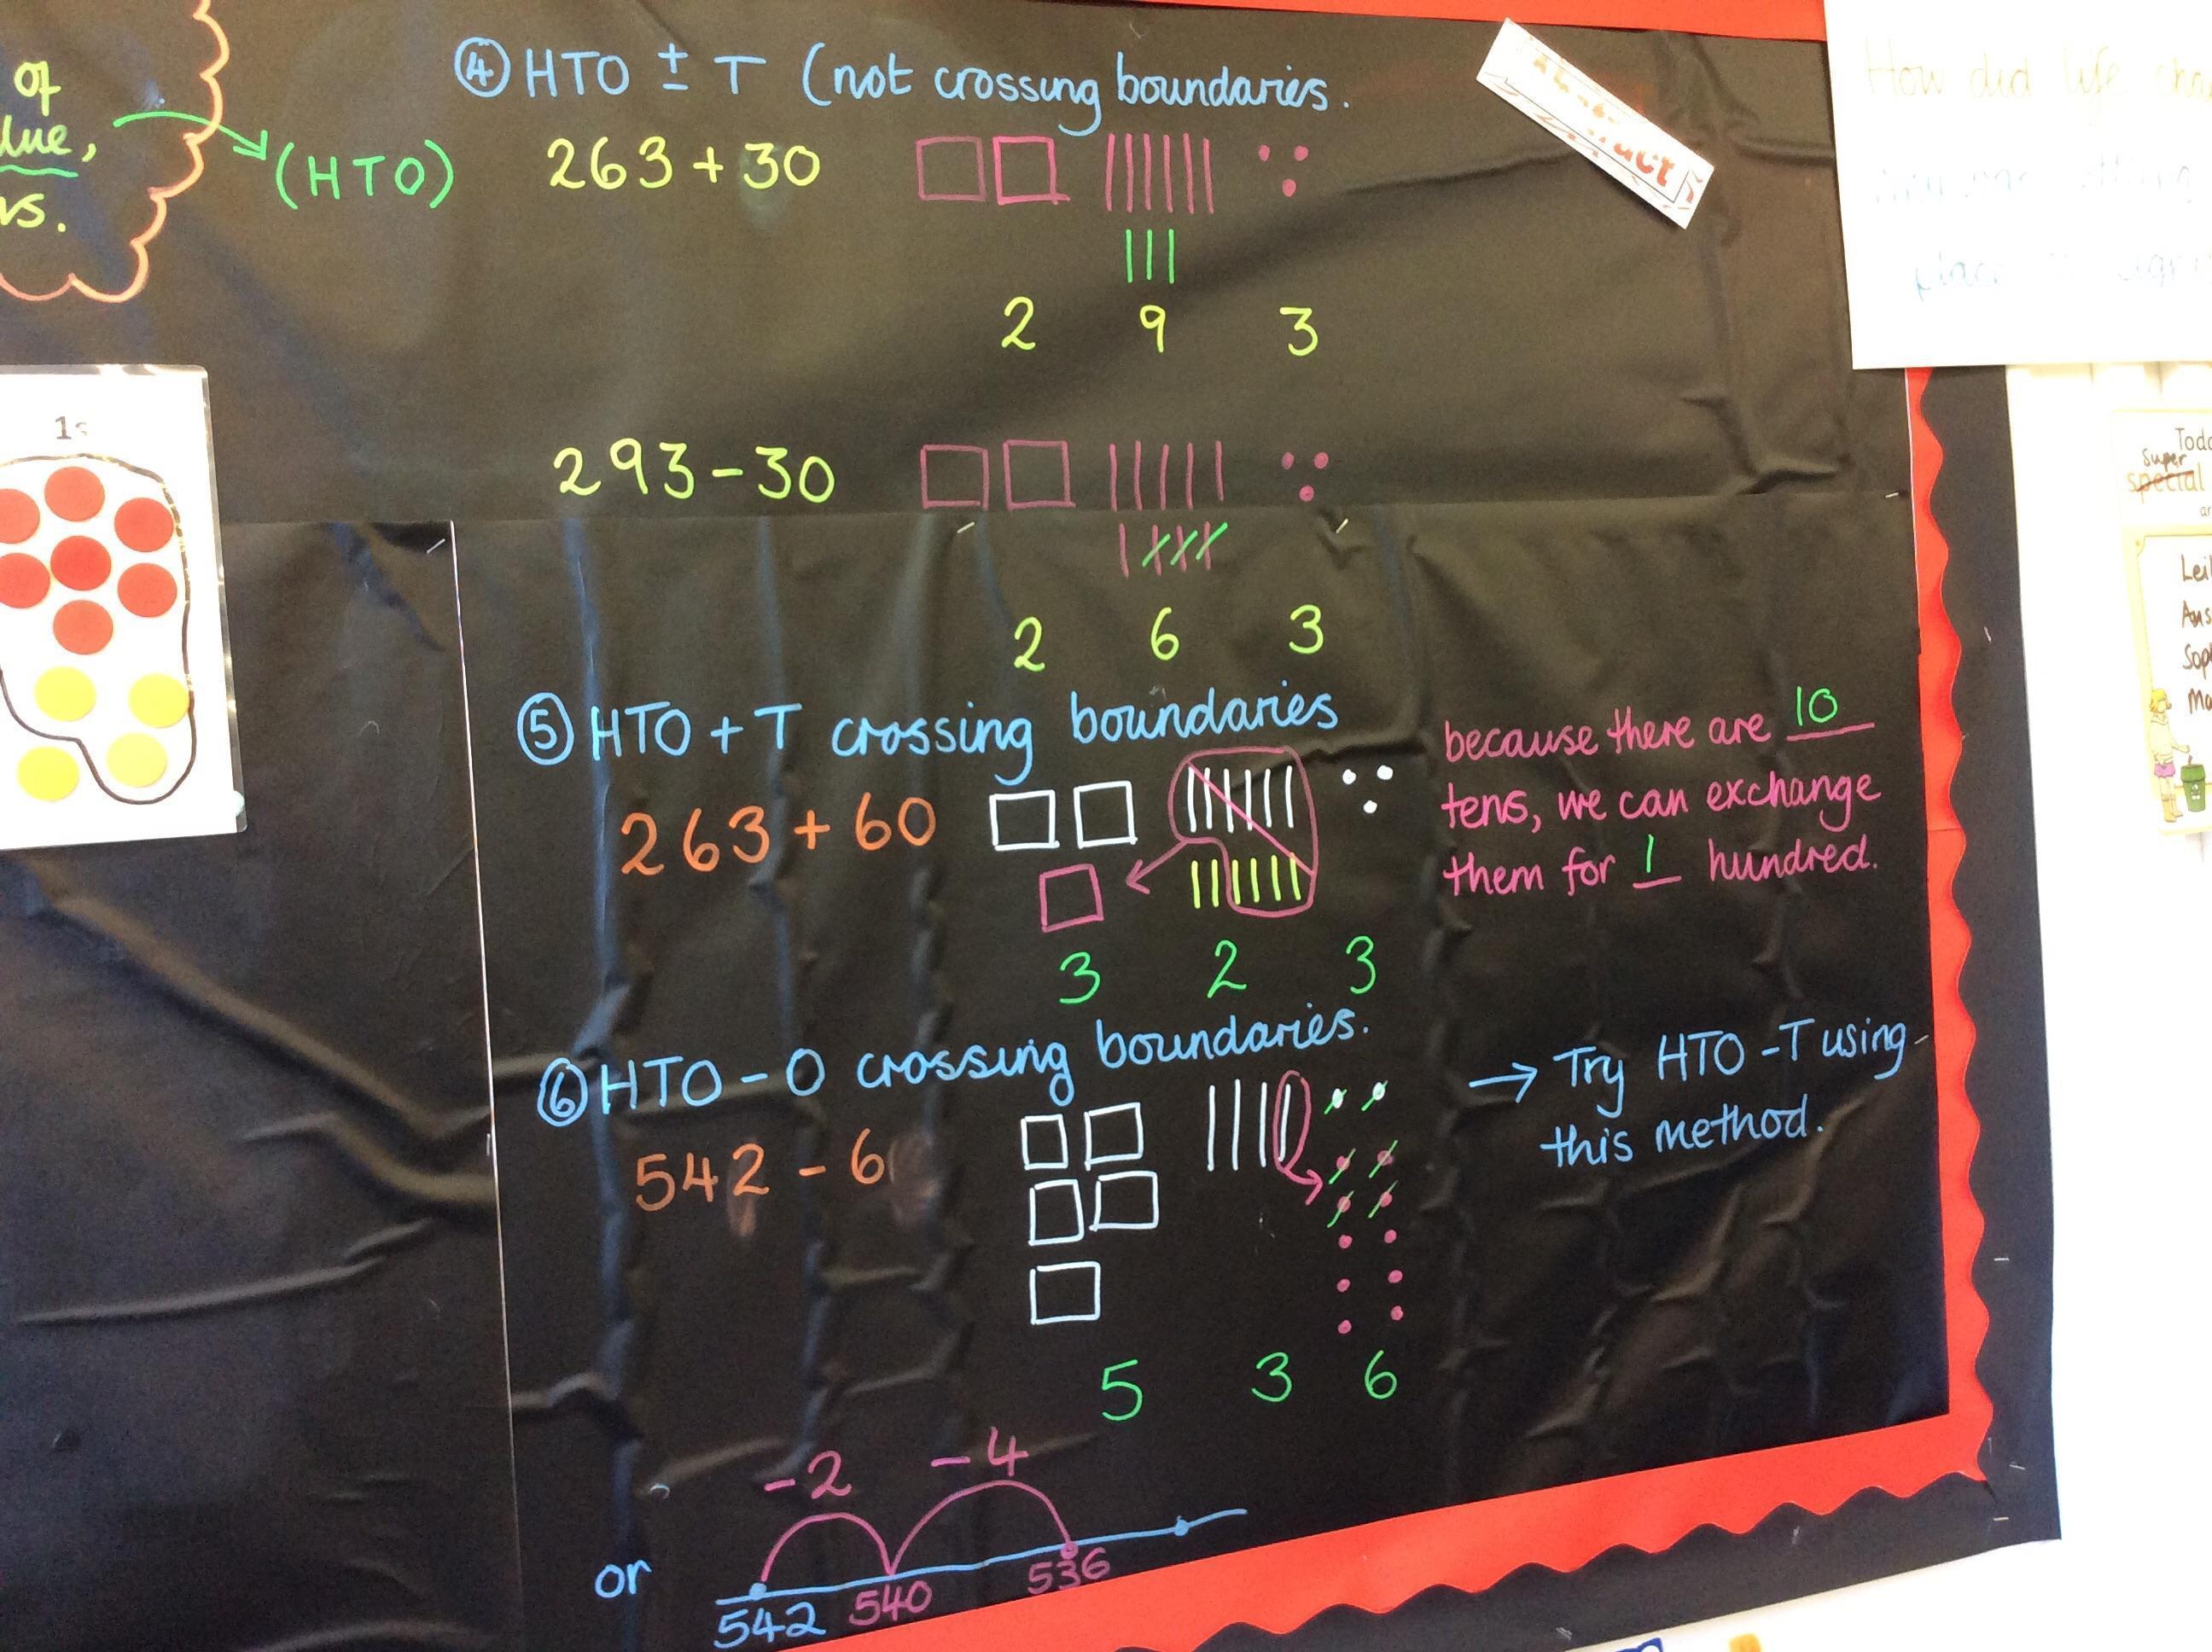 of
(HTO)
④ HTO ± T (not crossing boundaries.
263 + 30
2 9 3
293 - 30
2 6 3
⑤ HTO + T crossing boundaries
263 + 60
3 2 3
because there are 10
tens, we can exchange
them for 1 hundred.
⑥ HTO - O crossing boundaries.
542 - 6
5 3 6
→ Try HTO - T using
this method.
or
-2 -4
542 540 536
How did life
Super
special